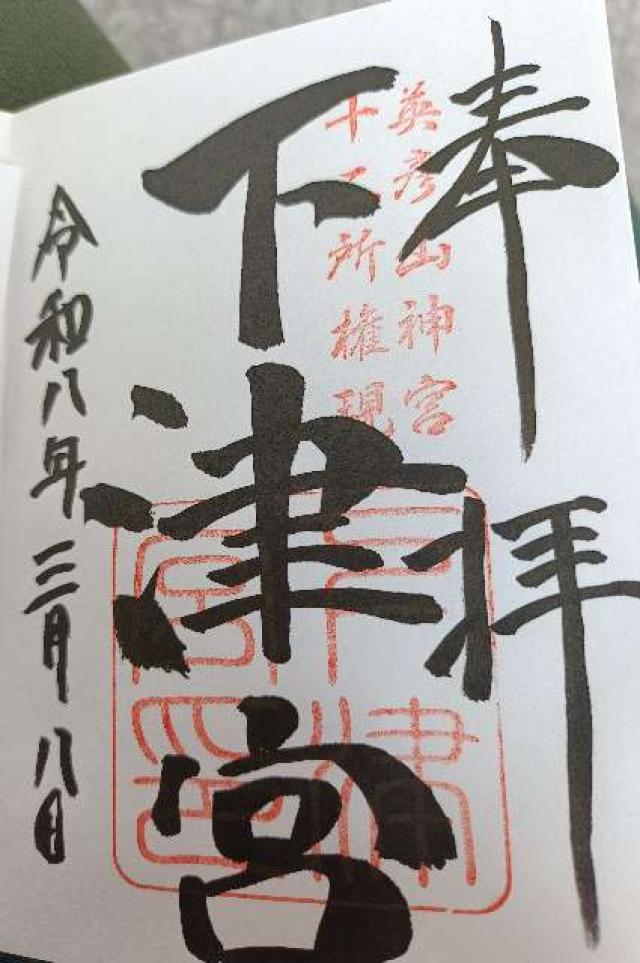 奉拝
英彦山神宮
十二所権現
下津宮
令和八年三月八日
下津宮印